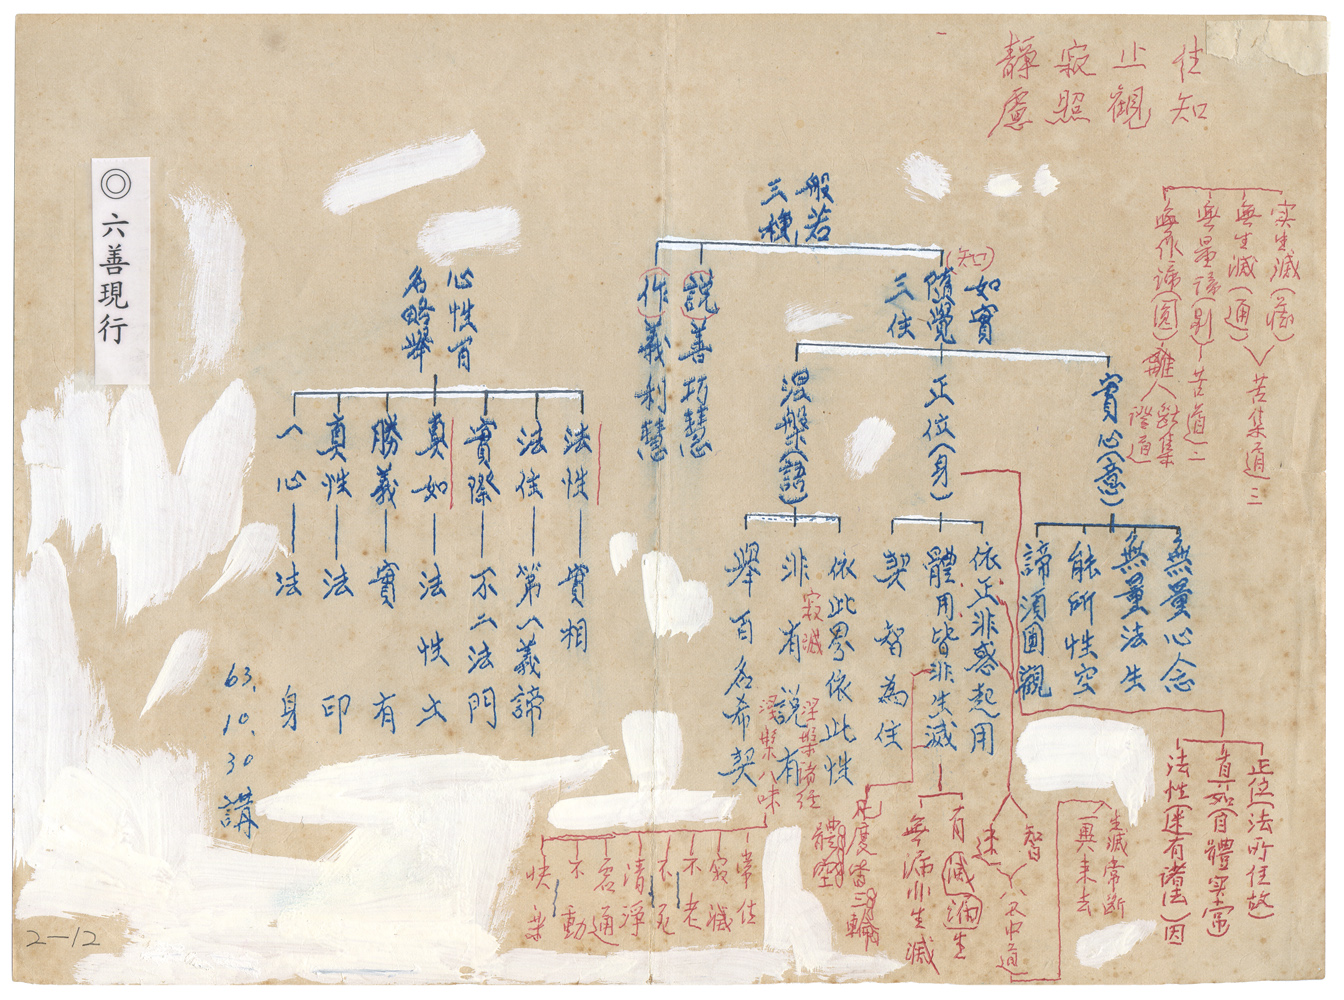 住知
止觀
寂照
靜慮
般若
三種
如實
隨覺
三住
(知)
說善巧慧
作義利慧
實心(意)
正位(身)
涅槃(語)
無量心念
無量法生
能所性空
諦須圓觀
依正非惑起用
體用皆非生滅
契智為住
依此界依此性
非有說有
舉百名希契
寂滅
心性百
名略舉
法性—實相
法住—第一義諦
實際—不二法門
真如—法性土
勝義—實有
真性—法印
一心—法身
63.10.30講
◎六善現行
实生滅(藏)
無生滅(通)
無量諦(別)
無作諦(圓)
苦集道三
苦道二
正位(法所住故)
真如(自體实常)
法性(迷有諸法)因
生滅常斷
一異来去
智
八不中道
無漏非生滅
涅槃八味
常住
寂滅
不老
不死
清淨
虛通
不動
快樂
2-12